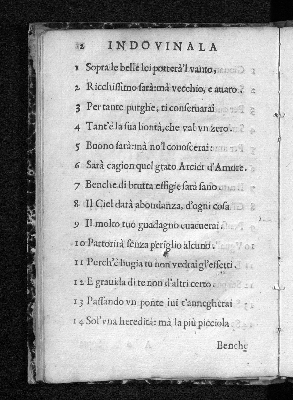 12 INDOVINALA
1 Sopra le belle lei potterà'l vanto,
2 Ricchissimo sarà: mà vecchio, e auaro.
3 Per tante purghe, ti conseruarai
4 Tant'è la sua bontà, che val vn zero.
5 Buono sarà: mà no'l conoscerai:
6 Sarà cagion quel grato Arcier d'Amore.
7 Benche di brutta effigie sarà sano
8 Il Ciel darà abondanza, d'ogni cosa
9 Il molto tuo guadagno euacuerai.
10 Partorirà senza periglio alcuno.
11 Perch'è bugia tu non vedrai gl'effetti.
12 E grauida di te non d'altri certo
13 Passando vn ponte iui t'annegherai
14 Sol'vna heredità: mà la più picciola
Benche